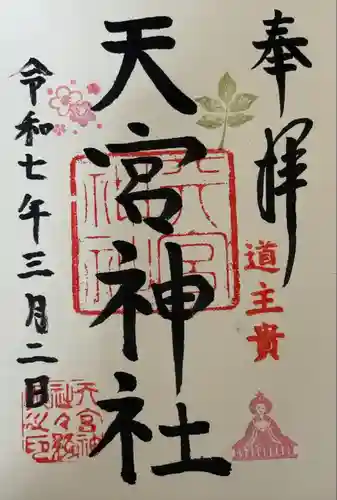 奉拝
道主貴
天宮神社
令和七年三月二日
天宮神社
天宮神
社々務
所之印